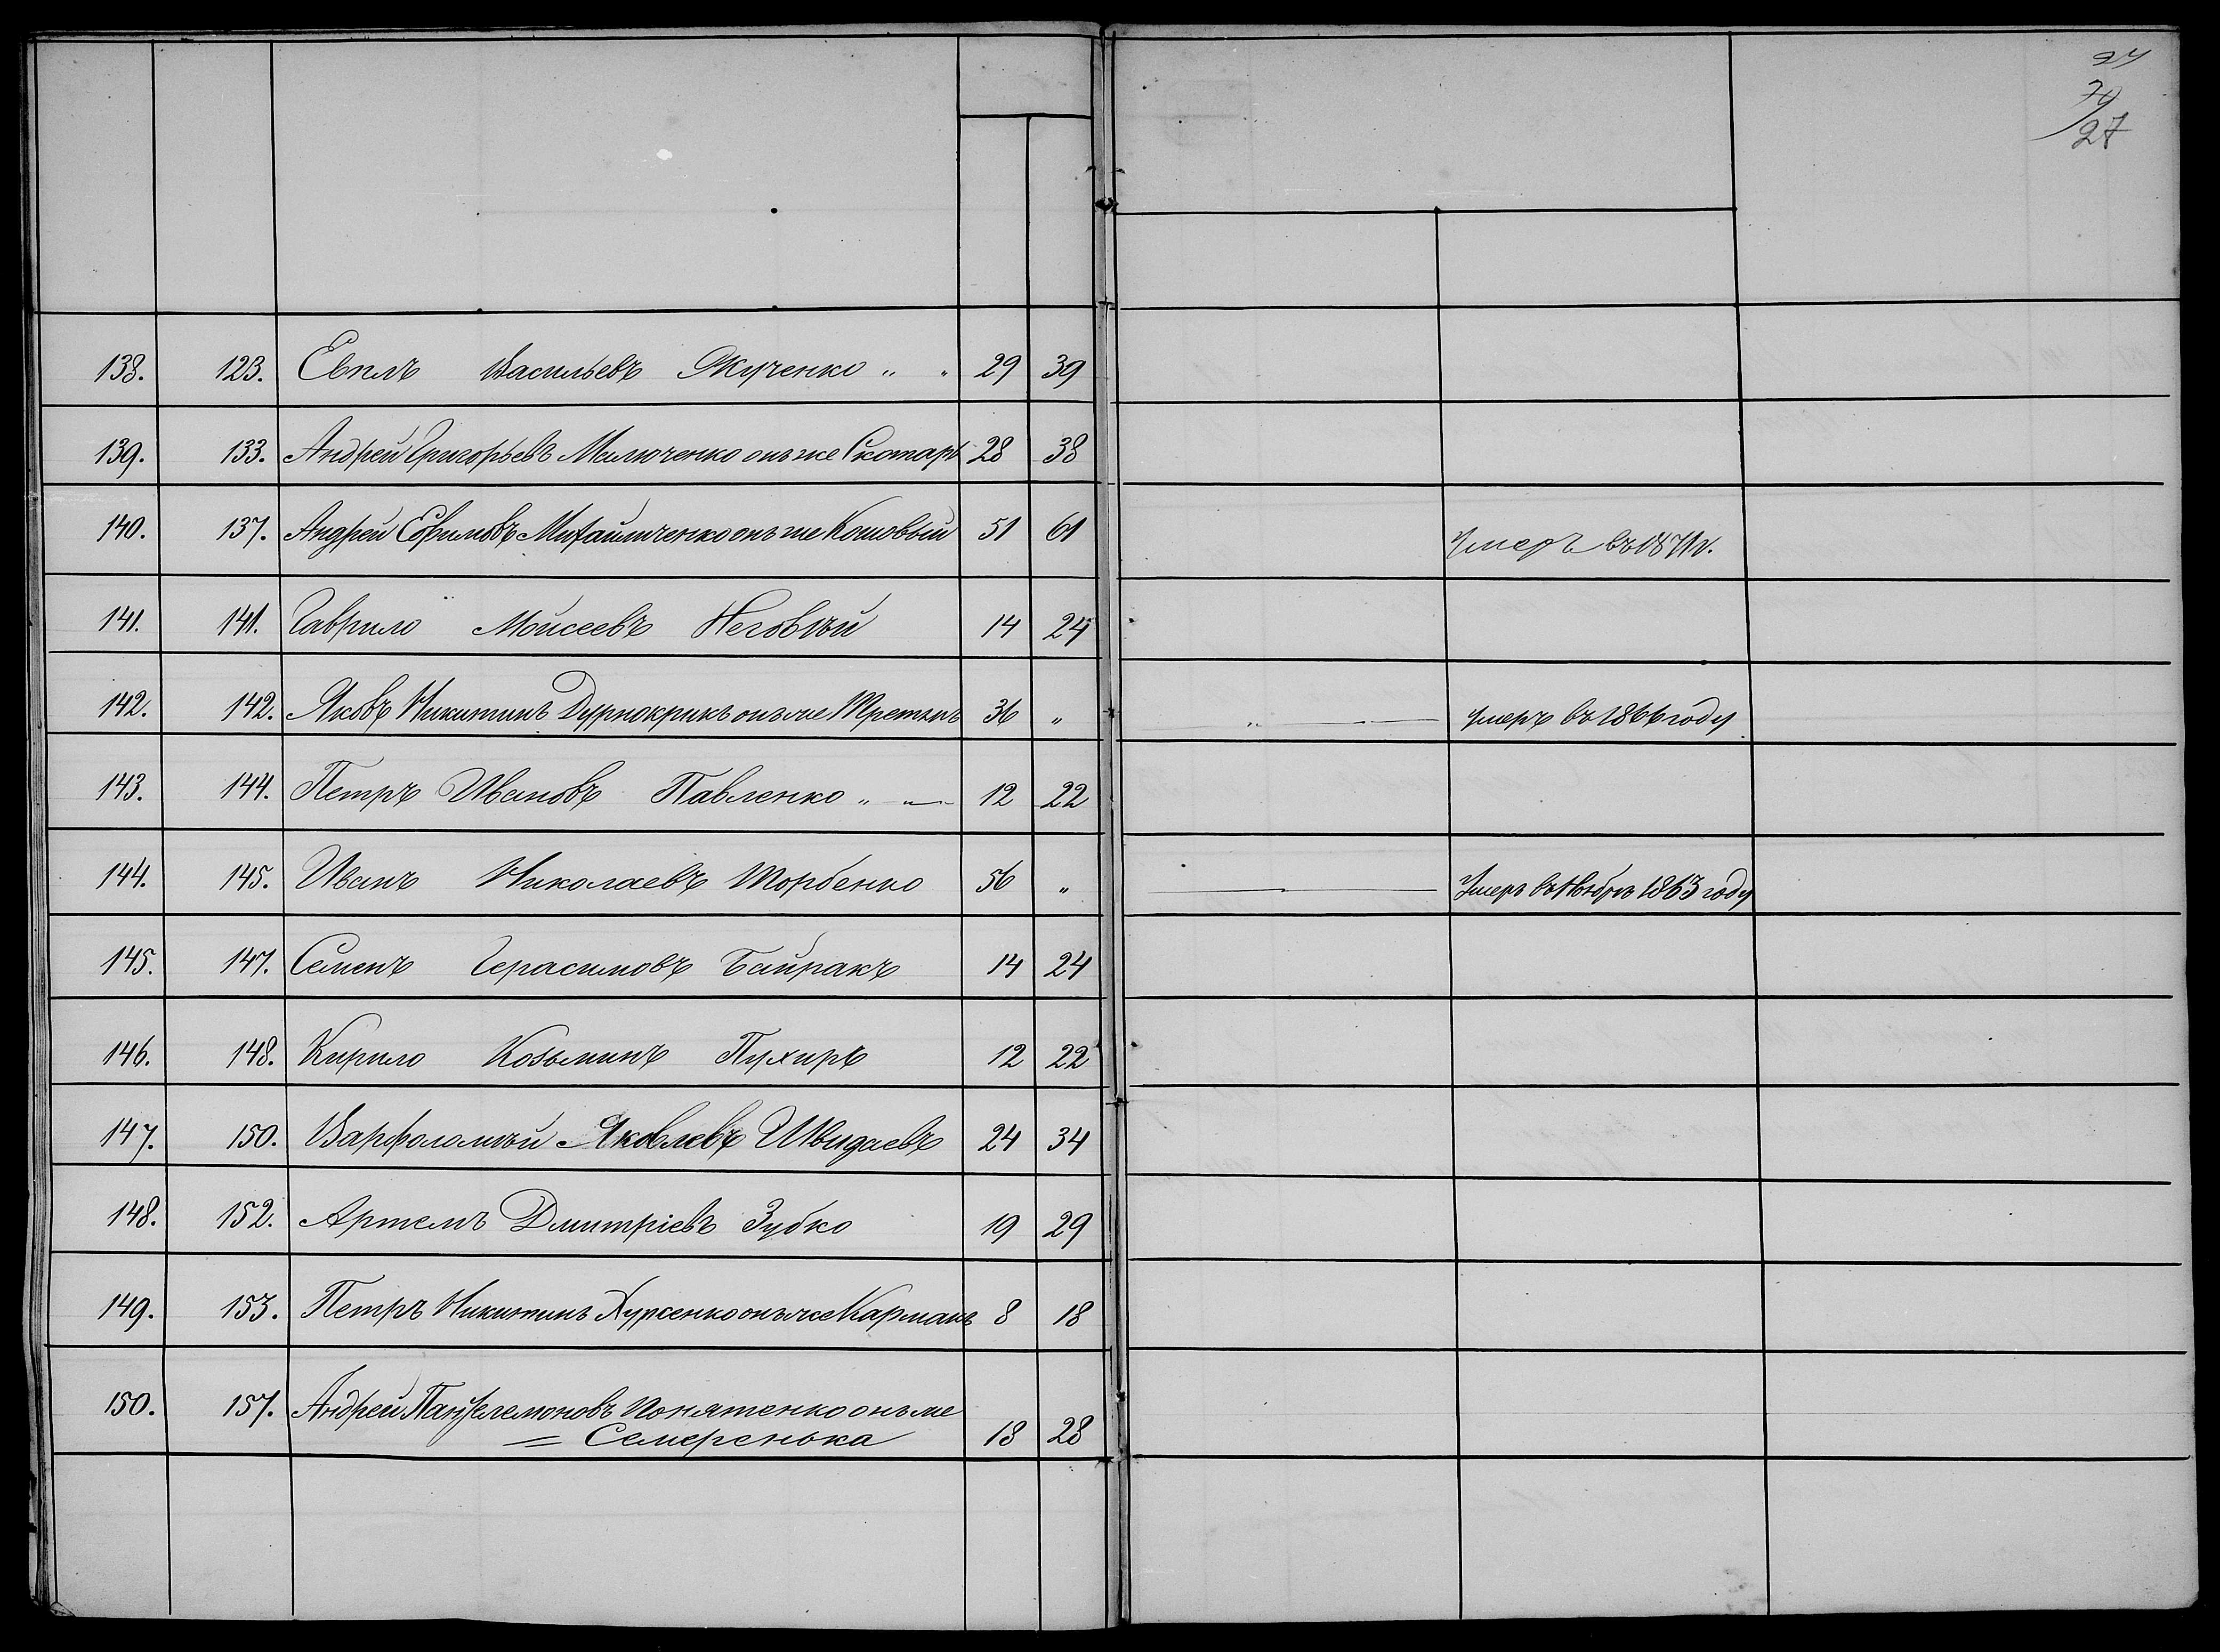 27
70
27
138. 123. Евплъ Васильевъ Якученко „ „ 29 39
139. 133. Андрей Григорьевъ Милюченко онъ же Скотарь 28 38
140. 137. Андрей Ефимовъ Михайличенко онъ же Кошовый 51 61 умеръ въ 1871 г.
141. 141. Гаврило Моисеевъ Неговъй 14 24
142. 142. Яковъ Никитинъ Дурнокрикъ онъ же Третякъ 36 „ „ умеръ въ 1866 году
143. 144. Петръ Ивановъ Павленко „ 12 22
144. 145. Иванъ Николаевъ Торбенко 56 „ Умеръ въ 1863 году
145. 147. Семенъ Герасимовъ Байракъ 14 24
146. 148. Кирило Козьминъ Пухирь 12 22
147. 150. Варфоломѣй Яковлевъ Швидаевъ 24 34
148. 152. Артемъ Дмитріевъ Зубко 19 29
149. 153. Петръ Никитинъ Хурсенко онъ же Карманъ 8 18
150. 157. Андрей Пантелемоновъ Понятенко онъ же
= Семеренька 18 28